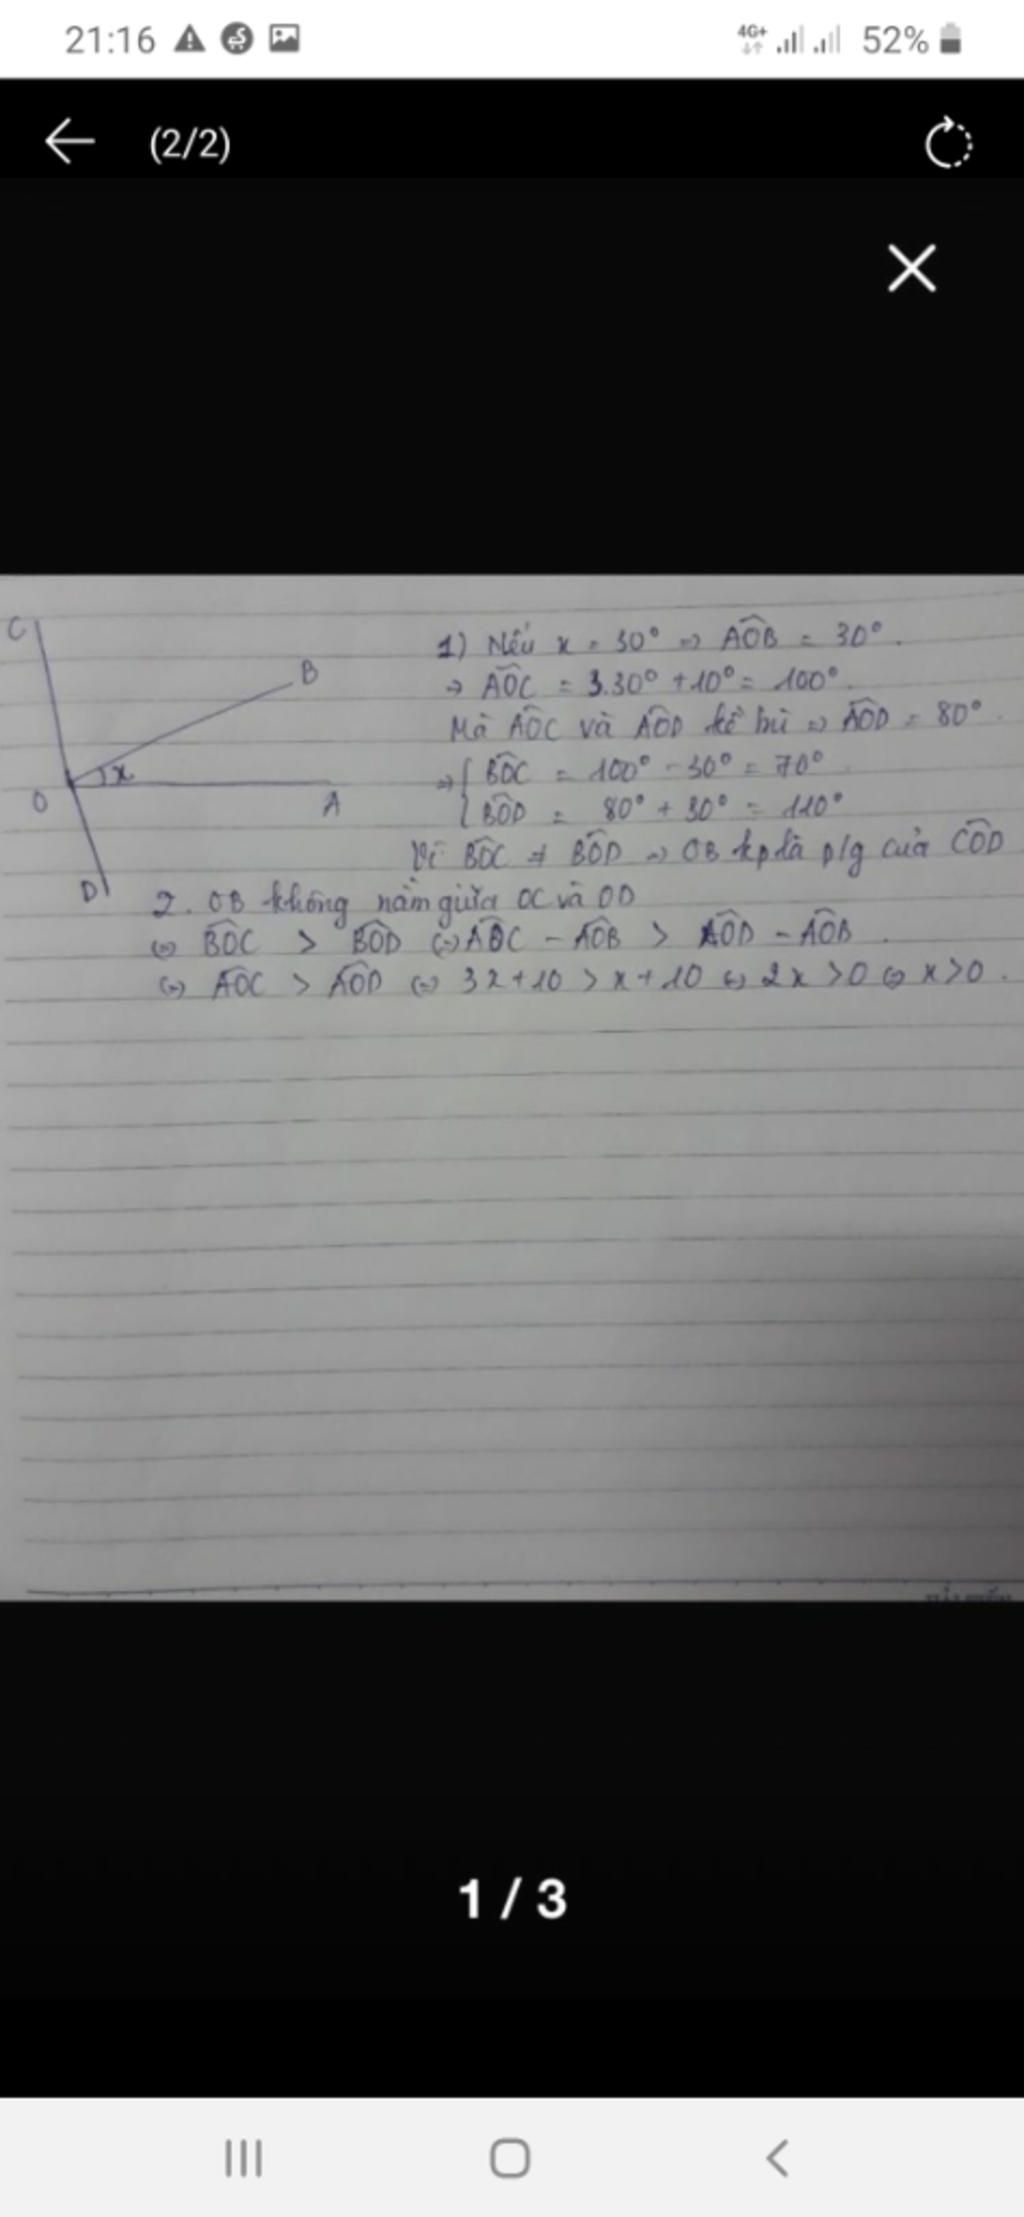 21:16 4G+ 52%
(2/2)
C
B
x
O
A
D
1) Nếu x = 30° => AOB = 30°.
→ AOC = 3.30° + 10° = 100°.
Mà AOC và AOD kề bù => AOD = 80°.
=> { BOC = 100° - 30° = 70°.
BOD = 80° + 30° = 110°
Vì BOC ≠ BOD => OB kp là p/g của COD
2. OB không nằm giữa OC và OD
<=> BOC > BOD <=> AOC - AOB > AOD - AOB.
<=> AOC > AOD <=> 3x+10 > x+10 <=> 2x >0 <=> x>0.
1 / 3